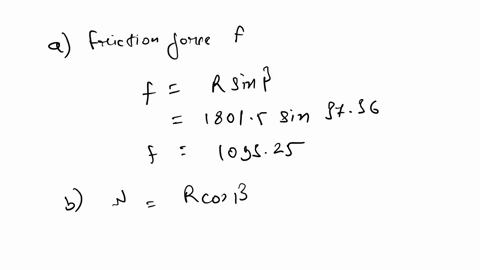 a) friction force f
f = R sin β
= 1801.5 sin 37.56
f = 1098.25
b) N = R cos β